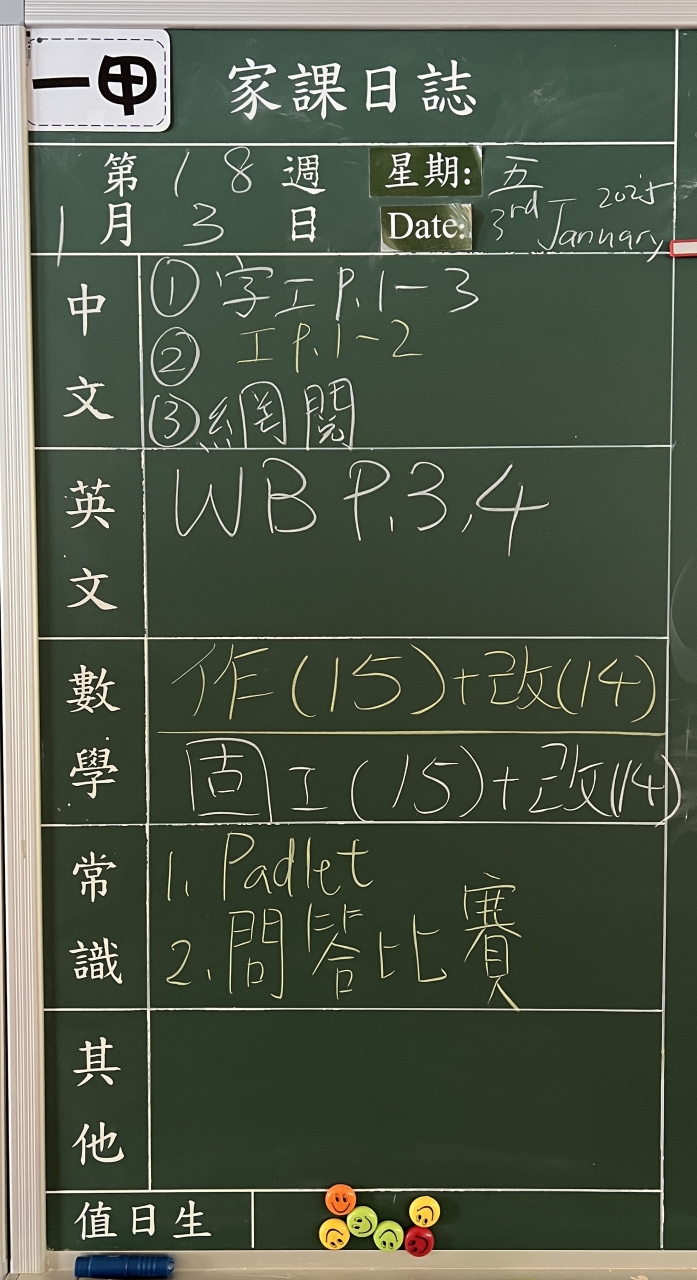 一甲
家課日誌
第18週 星期: 五
1月3日 Date: 3rd January 2025
中文
① 字工 P.1-3
② 工 P.1-2
③ 網閱
英文
WB P.3,4
數學
作(15)+改(14)
固工(15)+改(14)
常識
1. Padlet
2. 問答比賽
其他
值日生